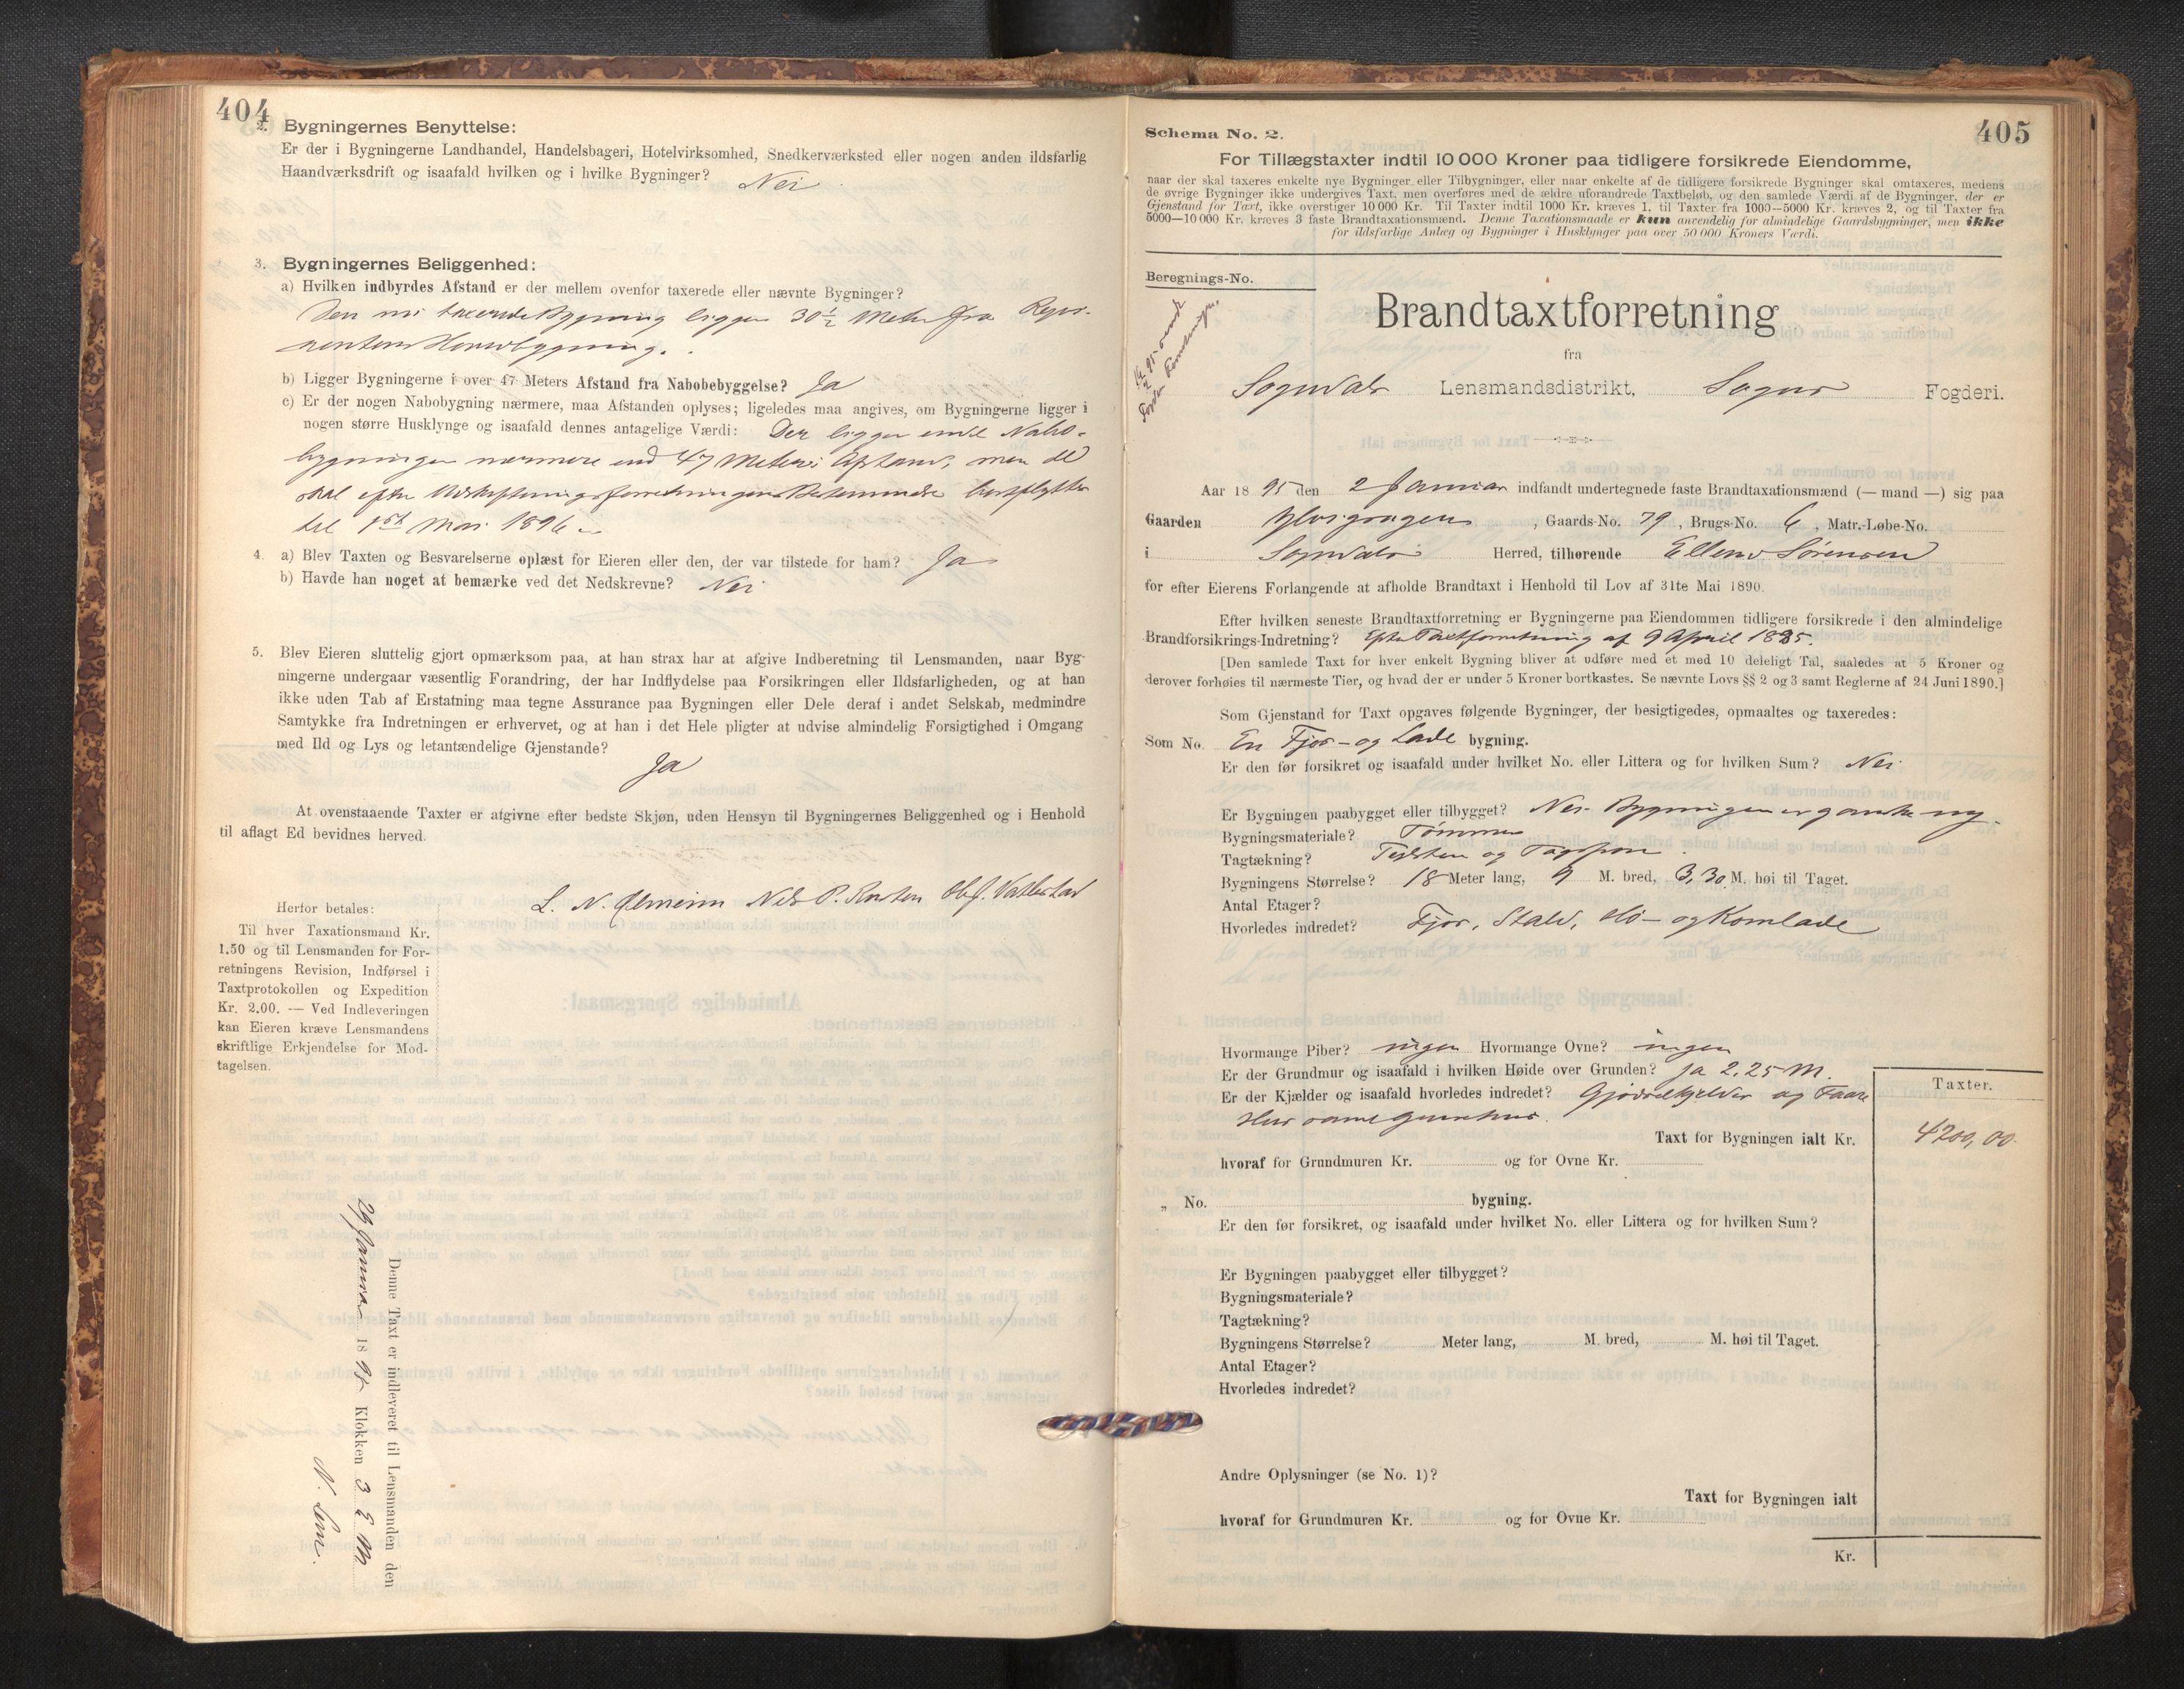 404
2. Bygningernes Benyttelse:
Er der i Bygningerne Landhandel, Handelsbageri, Hotelvirksomhed, Snedkerværksted eller nogen anden ildsfarlig
Haandværksdrift og isaafald hvilken og i hvilke Bygninger? Nei
3. Bygningernes Beliggenhed:
a) Hvilken indbyrdes Afstand er der mellem ovenfor taxerede eller nævnte Bygninger?
Den nu taxerede Bygning ligger 30½ Meter fra
b) Ligger Bygningerne i over 47 Meters Afstand fra Nabobebyggelse? Ja
c) Er der nogen Nabobygning nærmere, maa Afstanden oplyses; ligeledes maa angives, om Bygningerne ligger i
nogen større Husklynge og isaafald dennes antagelige Værdi: Der ligger endel Nabo-
bygninger nærmere end 47 Meters Afstand, men de
skal efter Udskiftningsforretningens Bestemmelse bortflyttes
til 1st Mai 1896
4. a) Blev Taxten og Besvarelserne oplæst for Eieren eller den, der var tilstede for ham? Ja
b) Havde han noget at bemærke ved det Nedskrevne? Nei
5. Blev Eieren sluttelig gjort opmærksom paa, at han strax har at afgive Indberetning til Lensmanden, naar Byg-
ningerne undergaar væsentlig Forandring, der har Indflydelse paa Forsikringen eller Ildsfarligheden, og at han
ikke uden Tab af Erstatning maa tegne Assurance paa Bygningen eller Dele deraf i andet Selskab, medmindre
Samtykke fra Indretningen er erhvervet, og at han i det Hele pligter at udvise almindelig Forsigtighed i Omgang
med Ild og Lys og letantændelige Gjenstande?
Ja
At ovenstaaende Taxter er afgivne efter bedste Skjøn, uden Hensyn til Bygningernes Beliggenhed og i Henhold
til aflagt Ed bevidnes herved.
L. N. Nels P.
Herfor betales:
Til hver Taxationsmand Kr.
1.50 og til Lensmanden for For-
retningens Revision, Indførsel i
Taxtprotokollen og Expedition
Kr. 2.00. — Ved Indleveringen
kan Eieren kræve Lensmandens
skriftlige Erkjendelse for Mod-
tagelsen.
Denne Taxt er indleveret til Lensmanden den
29 Januar 1895 Klokken 3 E M
405
Schema No. 2.
For Tillægstaxter indtil 10 000 Kroner paa tidligere forsikrede Eiendomme,
naar der skal taxeres enkelte nye Bygninger eller Tilbygninger, eller naar enkelte af de tidligere forsikrede Bygninger skal omtaxeres, medens
de øvrige Bygninger ikke undergives Taxt, men overføres med de ældre uforandrede Taxtbeløb, og den samlede Værdi af de Bygninger, der er
Gjenstand for Taxt, ikke overstiger 10 000 Kr. Til Taxter indtil 1000 Kr. kræves 1, til Taxter fra 1000—5000 Kr. kræves 2, og til Taxter fra
5000—10 000 Kr. kræves 3 faste Brandtaxationsmænd. Denne Taxationsmaade er kun anvendelig for almindelige Gaardsbygninger, men ikke
for ildsfarlige Anlæg og Bygninger i Husklynger paa over 50 000 Kroners Værdi.
Beregnings-No.
Brandtaxtforretning
fra
Sogndals Lensmandsdistrikt, Sogns Fogderi.
Aar 1895 den 2 Januar indfandt undertegnede faste Brandtaxationsmænd (— mand —) sig paa
Gaarden , Gaards-No. 79, Brugs-No. 6, Matr.-Løbe-No.
i Sogndals Herred, tilhørende Ellend Sørensen
for efter Eierens Forlangende at afholde Brandtaxt i Henhold til Lov af 31te Mai 1890.
Efter hvilken seneste Brandtaxtforretning er Bygningerne paa Eiendommen tidligere forsikrede i den almindelige
Brandforsikrings-Indretning? Efter Taxtforretning af 9 April 1885.
[Den samlede Taxt for hver enkelt Bygning bliver at udføre med et med 10 deleligt Tal, saaledes at 5 Kroner og
derover forhøies til nærmeste Tier, og hvad der er under 5 Kroner bortkastes. Se nævnte Lovs §§ 2 og 3 samt Reglerne af 24 Juni 1890.]
Som Gjenstand for Taxt opgaves følgende Bygninger, der besigtigedes, opmaaltes og taxeredes:
Som No. En Fjøs- og Lade bygning.
Er den før forsikret og isaafald under hvilket No. eller Littera og for hvilken Sum? Nei
Er Bygningen paabygget eller tilbygget? Nei. Bygningen er ganske ny.
Bygningsmateriale? Tømmer
Tagtækning? Teglsten og Tagspon.
Bygningens Størrelse? 18 Meter lang, 9 M. bred, 3,30 M. høi til Taget.
Antal Etager?
Hvorledes indredet? Fjøs, Stald, Hø- og Kornlade
Hvormange Piber? ingen Hvormange Ovne? ingen
Er der Grundmur og isaafald i hvilken Høide over Grunden? Ja 2,25 M.
Er der Kjælder og isaafald hvorledes indredet? Gjødselkjelder og Faare
Hus samt
Taxter.
Taxt for Bygningen ialt Kr. 4200,00
hvoraf for Grundmuren Kr. og for Ovne Kr.
„ No. bygning.
Er den før forsikret, og isaafald under hvilket No. eller Littera og for hvilken Sum?
Er Bygningen paabygget eller tilbygget?
Bygningsmateriale?
Tagtækning?
Bygningens Størrelse? Meter lang, M. bred, M. høi til Taget.
Antal Etager?
Hvorledes indredet?
Andre Oplysninger (se No. 1)?
Taxt for Bygningen ialt
hvoraf for Grundmuren Kr. og for Ovne Kr.
Kr.